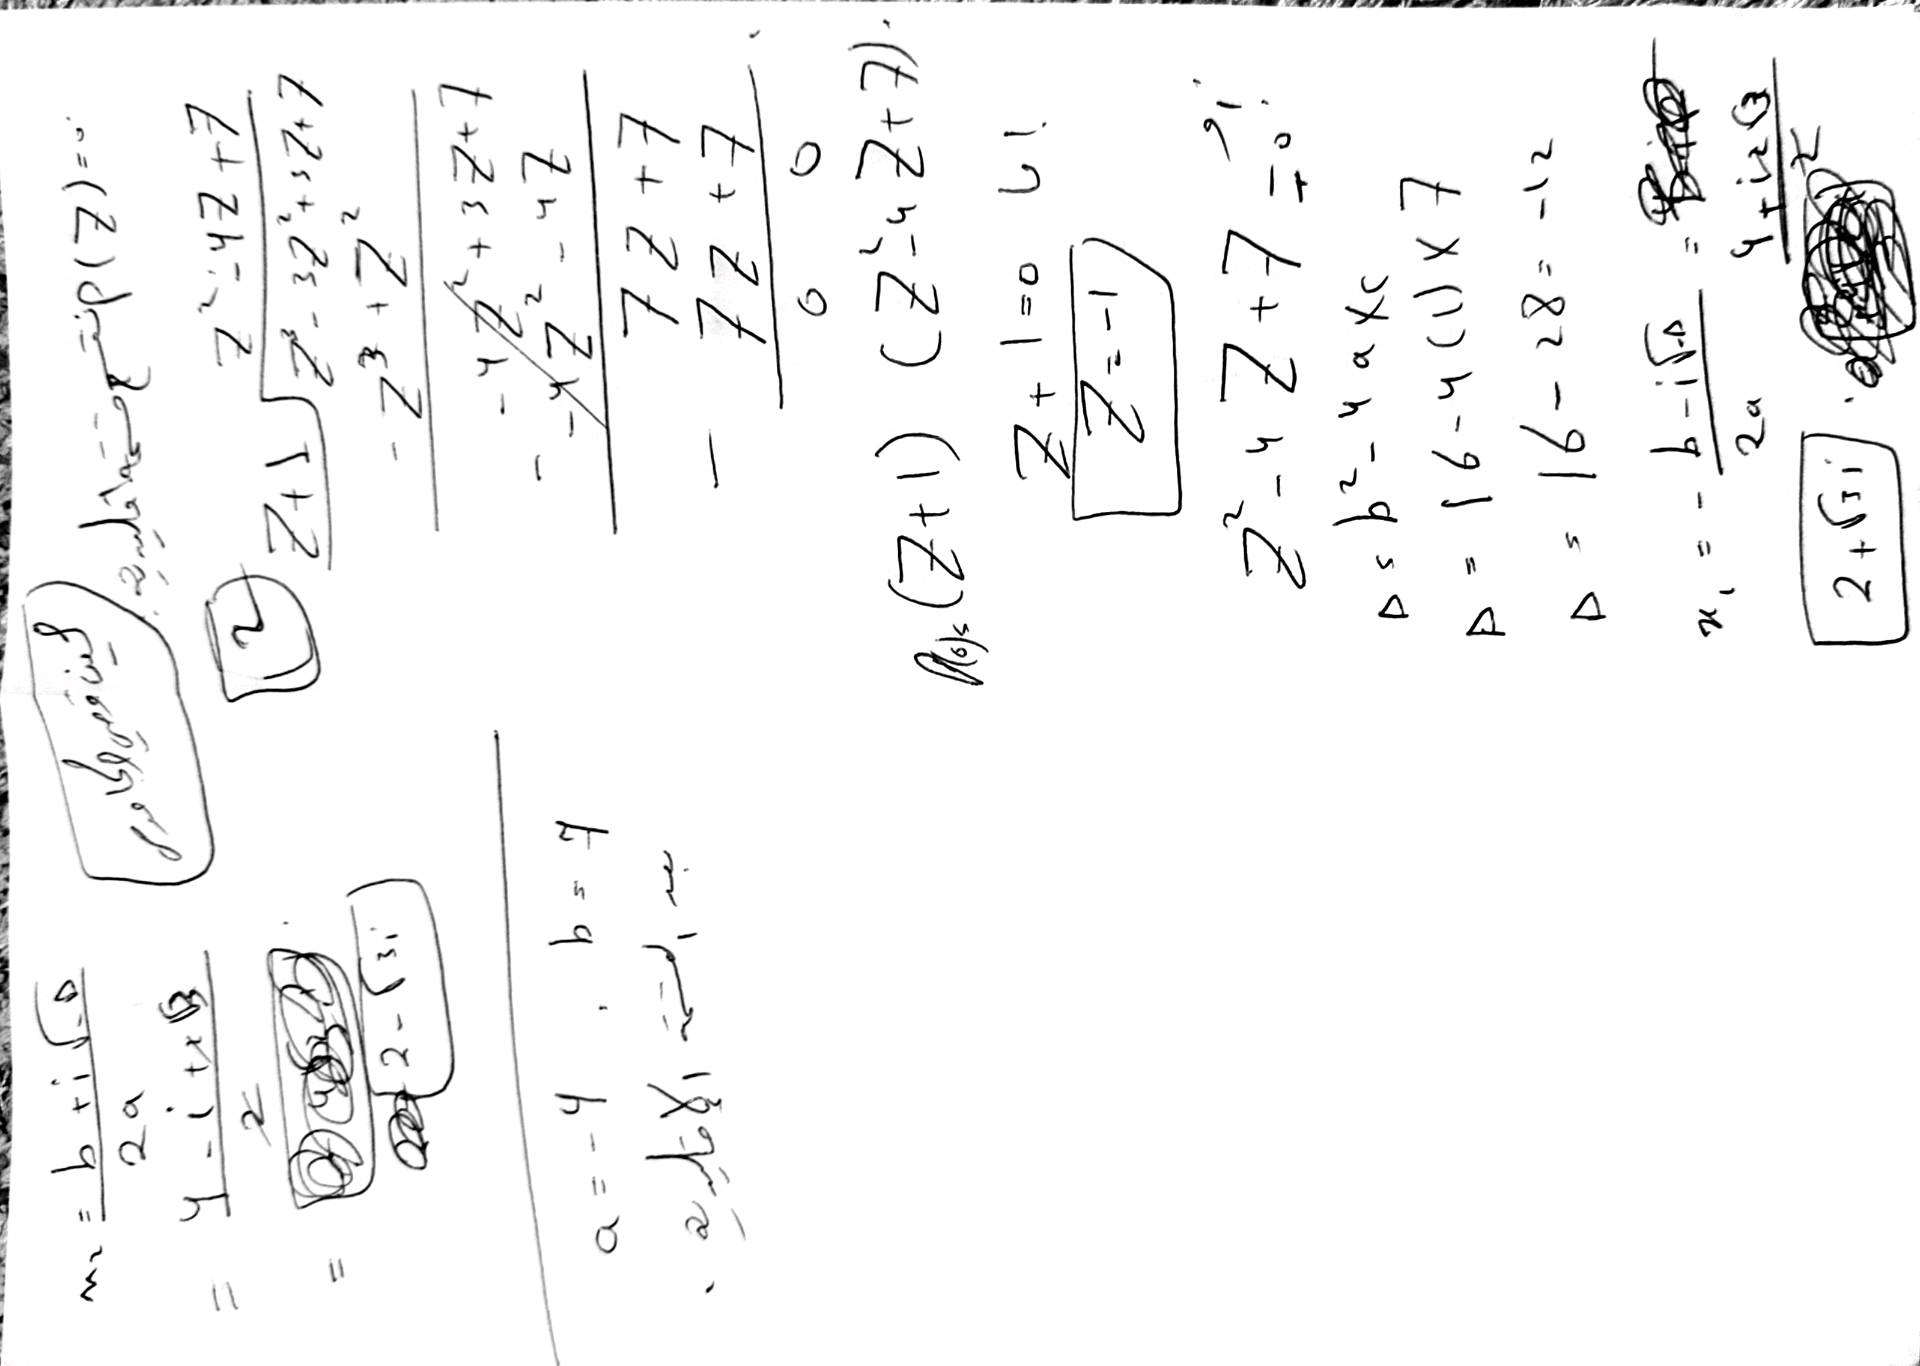 المعادلة p(Z)=0
2
Z²-4Z+7
Z+1
Z³-3Z²+3Z+7
- Z³+Z²
-4Z²+3Z+7
- -4Z²-4Z
7Z+7
- 7Z+7
0 0
(Z+1) (Z²-4Z+7)
Z+1=0 أو
Z=-1
Z²-4Z+7=0
Δ= b²-4axc
Δ= 16-4(1)x7
Δ= 16-28=-12
x₁ = - b-i√-Δ
2a
= 4+i2√3
2
2+√3i
x₂ = b+i√-Δ
2a
= 4-i
2
= 2-√3i
a=-4 . b=7